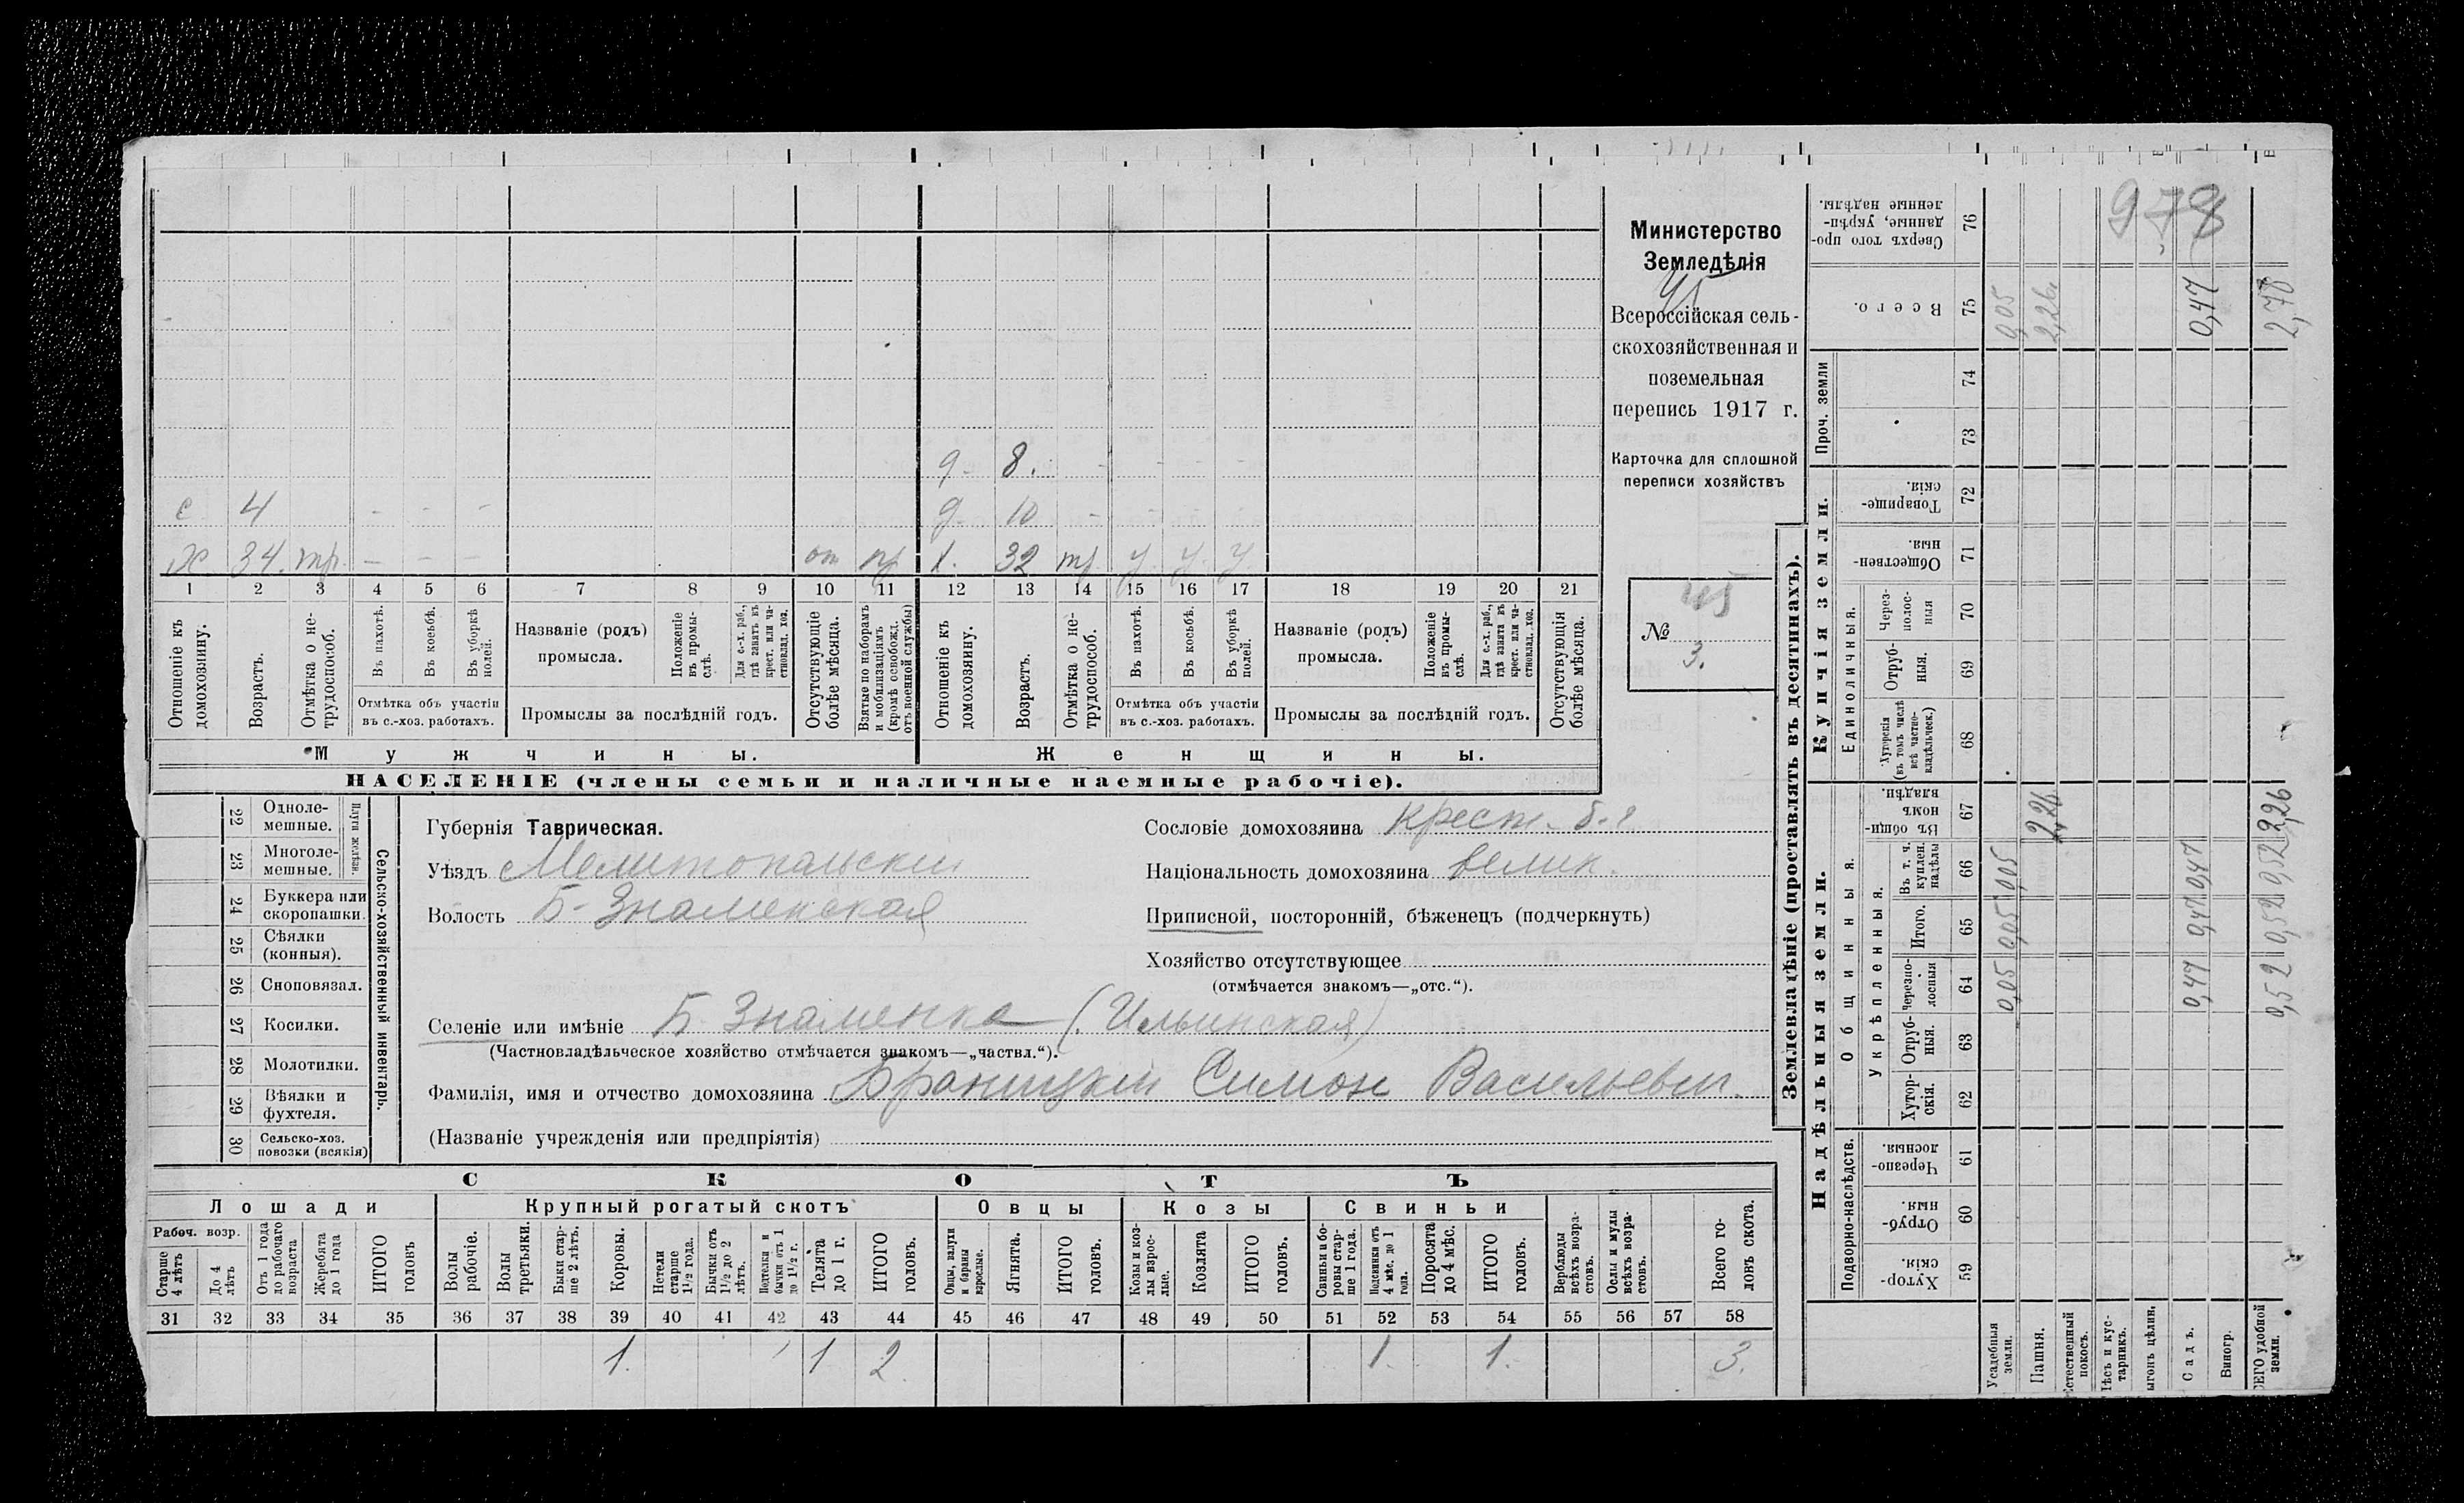 с 4 - - -
х 34. тр. - - - от пр
д- 8. - - - -
д- 10 - - - -
х. 32 тр у. у. у.
1 2 3 4 5 6 7 8 9 10 11 12 13 14 15 16 17 18 19 20 21
Отношеніе къ домохозяину.
Возрастъ.
Отмѣтка о не-трудоспособ.
Въ пахотѣ.
Въ косьбѣ.
Въ уборкѣ полей.
Отмѣтка объ участіи
въ с.-хоз. работахъ.
Названіе (родъ)
промысла.
Положеніе въ промы-слѣ.
Для с.-х. раб., гдѣ занятъ въ крест. или ча-стновлад. хоз.
Промыслы за послѣдній годъ.
Отсутствующіе болѣе мѣсяца.
Взятые по наборамъ и мобилизаціямъ (кромѣ освобожд. отъ военной службы)
Отношеніе къ домохозяину.
Возрастъ.
Отмѣтка о не-трудоспособ.
Въ пахотѣ.
Въ косьбѣ.
Въ уборкѣ полей.
Отмѣтка объ участіи
въ с.-хоз. работахъ.
Названіе (родъ)
промысла.
Положеніе въ промы-слѣ.
Для с.-х. раб., гдѣ занята въ крест. или ча-стновлад. хоз.
Промыслы за послѣдній годъ.
Отсутствующія болѣе мѣсяца.
Мужчины.
Женщины.
НАСЕЛЕНІЕ (члены семьи и наличные наемные рабочіе).
Министерство
Земледѣлія
45
Всероссійская сель-
скохозяйственная и
поземельная
перепись 1917 г.
Карточка для сплошной
переписи хозяйствъ
45
№
3.
22 Одноле-мешные.
23 Многоле-мешные.
Плуги желѣзн.
24 Буккера или скоропашки.
25 Сѣялки (конныя).
26 Сноповязал.
27 Косилки.
28 Молотилки.
29 Вѣялки и фухтеля.
30 Сельско-хоз. повозки (всякія)
Сельско-хозяйственный инвентарь.
Губернія Таврическая.
Уѣздъ Мелитопольскій
Волость Б-Знаменская
Сословіе домохозяина Крест.
Національность домохозяина велик.
Приписной, посторонній, бѣженецъ (подчеркнуть)
Хозяйство отсутствующее
(отмѣчается знакомъ—„отс.“).
Селеніе или имѣніе Б Знаменка (Ильинская)
(Частновладѣльческое хозяйство отмѣчается знакомъ—„частвл.“).
Фамилія, имя и отчество домохозяина Браницкій Симон Васильевич.
(Названіе учрежденія или предпріятія)
СКОТЪ
Лошади
Крупный рогатый скотъ
Овцы
Козы
Свиньи
Рабоч. возр.
Старше 4 лѣтъ
До 4 лѣтъ
Отъ 1 года до рабочаго возраста
Жеребята до 1 года
ИТОГО головъ
Волы рабочіе.
Волы третьяки.
Быки стар-ше 2 лѣтъ.
Коровы.
Нетели старше 1½ года.
Бычки отъ 1½ до 2 лѣтъ.
Подтелки и бычки отъ 1 до 1½ г.
Телята до 1 г.
ИТОГО головъ.
Овцы, валухи и бараны взрослые.
Ягнята.
ИТОГО головъ.
Козы и коз-лы взрос-лые.
Козлята
ИТОГО головъ.
Свиньи и бо-ровы стар-ше 1 года.
Подсвинки отъ 4 мѣс. до 1 года.
Поросята до 4 мѣс.
ИТОГО головъ.
Верблюды всѣхъ возра-стовъ.
Ослы и мулы всѣхъ возра-стовъ.
Всего го-ловъ скота.
31 32 33 34 35 36 37 38 39 40 41 42 43 44 45 46 47 48 49 50 51 52 53 54 55 56 57 58
1. 1 2 1. 1. 3.
Землевладѣніе (проставлять въ десятинахъ).
Купчія земли.
Надѣльныя земли.
Сверхъ того про-данные, укрѣп-ленные надѣлы. 76
978
Всего. 75 0,05 2,26 0,47 2,78
Проч. земли
74
73
Товарище-скія. 72
Обществен-ныя. 71
Единоличныя.
Через-полос-ныя 70
Отруб-ныя. 69
Хуторскія (въ томъ числѣ всѣ частно-владѣльческ.) 68
Общинныя.
Въ общи-номъ владѣн. 67 2,26 2,26
Укрѣпленныя.
Въ т. ч. куплен. надѣлы 66 0,05 0,47 0,52
Итого. 65 0,05 0,47 0,52
Черезпо-лосныя 64 0,05 0,47 0,52
Отруб-ныя. 63
Хутор-скія. 62
Подворно-наслѣдств.
Черезпо-лосныя. 61
Отруб-ныя 60
Хутор-скія. 59
Усадебныя земли.
Пашня.
Естественный покосъ.
Лѣсъ и кус-тарникъ.
Выгонъ цѣлин.
Садъ.
Виногр.
ВСЕГО удобной земли.